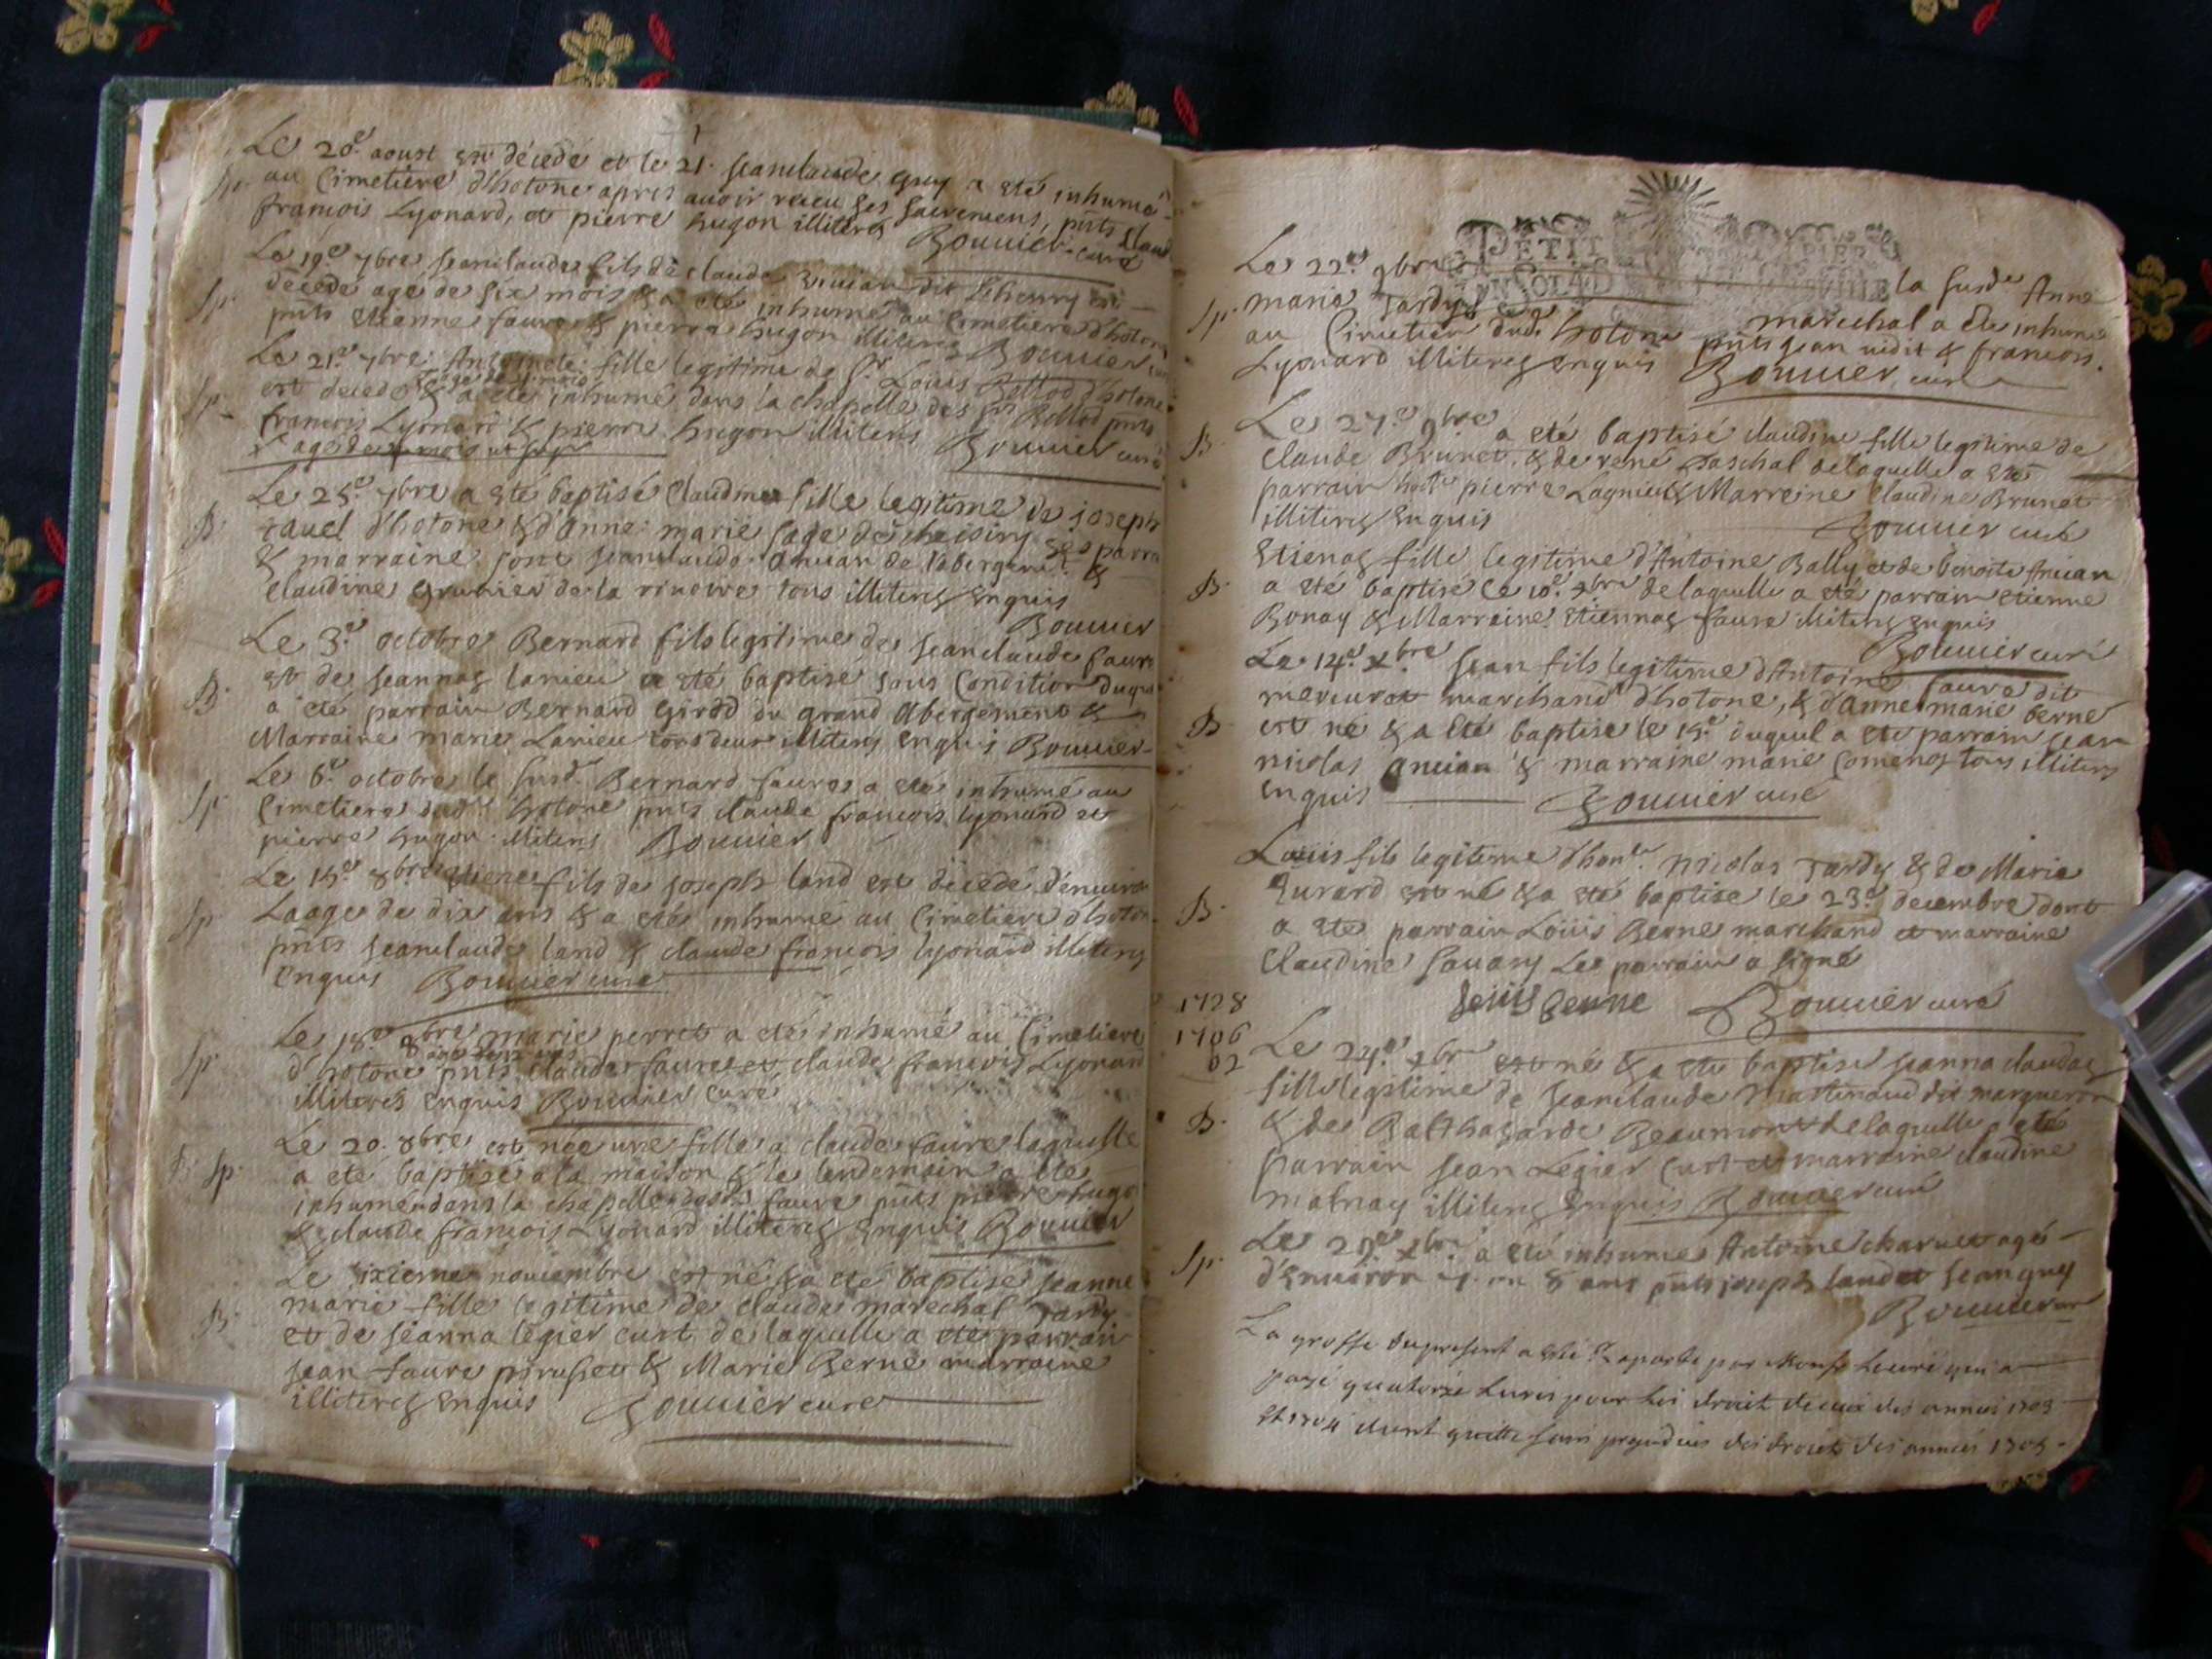 Le 20e aoust est décedé et le 21. Jeanclaude guy a été inhumé
Sp. au Cimetiere d'hotone apres auoir receu ses sacremens, pnts
françois Lyonard, et pierre hugon illiterés Bouuier curé
Le 19e 7bre Jeanclaude fils de claude dit est
Sp. décedé agé de six mois & a été inhumé au Cimetiere d'hotone
pnts etienne faure & pierre hugon illiterés Bouuier
Le 21e 7bre Antoinete fille legitime de Sr Louis Bellod d'hotone
Sp. est decedé & a été inhumé dans la chapelle des Srs Bellod pnts
francois Lyonard & pierre hugon illiterés Bouuier curé
Le 25e 7bre a eté baptisé Claudine fille legitime de joseph
B. d'hotone & d'Anne marie sage parra
& marraine sont Jeanclaude Anuian de labergement &
Claudine de la riuoire tous illiterés enquis
Bouuier
Le 3e octobre Bernard fils legitime de Jeanclaude faure
B. et de Jeannaz lanieu a eté baptisé sous Condition duquel
a eté parrain Bernard Girod du grand Abergement &
Marraine marie Lanieu tous deux illiterés enquis Bouuier
Le 6e octobre le susd. Bernard faure a eté inhumé au
Sp. Cimetiere dud. hotone pnts claude francois lyonard et
pierre hugon illiterés Bouuier
Le 15e 8bre fils de Joseph land est décedé d'enuiron
Sp. Laage de dix ans & a eté inhumé au Cimetiere d'hotone
pnts Jeanclaude land & claude francois lyonard illiterés
enquis Bouuier curé
Le 18e 8bre marie perret a eté inhumé au Cimetiere
Sp. d'hotone pnts claude faure et claude francois Lyonard
illiterés enquis Bouuier curé
Le 20. 8bre est née une fille a claude faure laquelle
B. Sp. a eté baptisé a la maison & le lendemain a eté
inhumé dans la chapelle faure pnts pierre hugon
& claude françois Lyonard illiterés enquis Bouuier
Le sixieme nouembre est né & a eté baptisé Jeanne
marie fille legitime de claude marechal Tardy
B. et de Jeanna legier curt de laquelle a eté parrain
Jean faure & Marie Berne marraine
illiterés enquis Bouuier curé
PETIT PAPIER
Le 22e 9bre la susde Anne
Sp. marie Tardy marechal a été inhumé
au Cimetier dud. hotone pnts Jean nidit & francois
Lyonard illiterés enquis Bouuier curé
Le 27e 9bre a eté baptisé claudine fille legitime de
B. Claude Brunet & de René Paschal de laquelle a eté
parrain pierre Lagnieu & Marreine Claudine Brunet
illiterés enquis Bouuier curé
Etienaz fille legitime d'Antoine Bally et de benoite Anuian
B. a eté baptisé le 10e de laquelle a eté parrain etienne
Bonay & Marraine Etiennaz faure illiterés enquis
Bouuier curé
Le 14e xbre Jean fils legitime d'Antoine faure dit
mercuret marchand d'hotone, & d'Anne marie berne
B. est né & a eté baptisé le 15e duquel a eté parrain Jean
nicolas Anuian & marraine marie tous illiterés
enquis Bouuier curé
Louis fils legitime d'honle Nicolas Tardy & de Marie
Eurard est né & a eté baptisé le 23e decembre dont
B. a eté parrain Loüis Berne marchand et marraine
Claudine Sauary Le parrain a signé
1728 Bouuier curé
1706
02 Le 24e xbre est né & a eté baptisé Jeanna claudaz
fille legitime de Jeanclaude Martinaud dit
B. & de Balthazarde Beaumont de laquelle a eté
parrain Jean Legier Curt et marraine claudine
illiterés enquis Bouuier curé
Le xbre a eté inhumé Antoine charuet agé
Sp. d'enuiron 8 ans pnts joseph land et Jean guy
Bouuier
La grosse du present a esté aporté par Monsr le curé qui a
payé quatorze Liures pour les droits de ceux des années 1703
et 1704 dont quitte sans prejudice des droits des années 1705